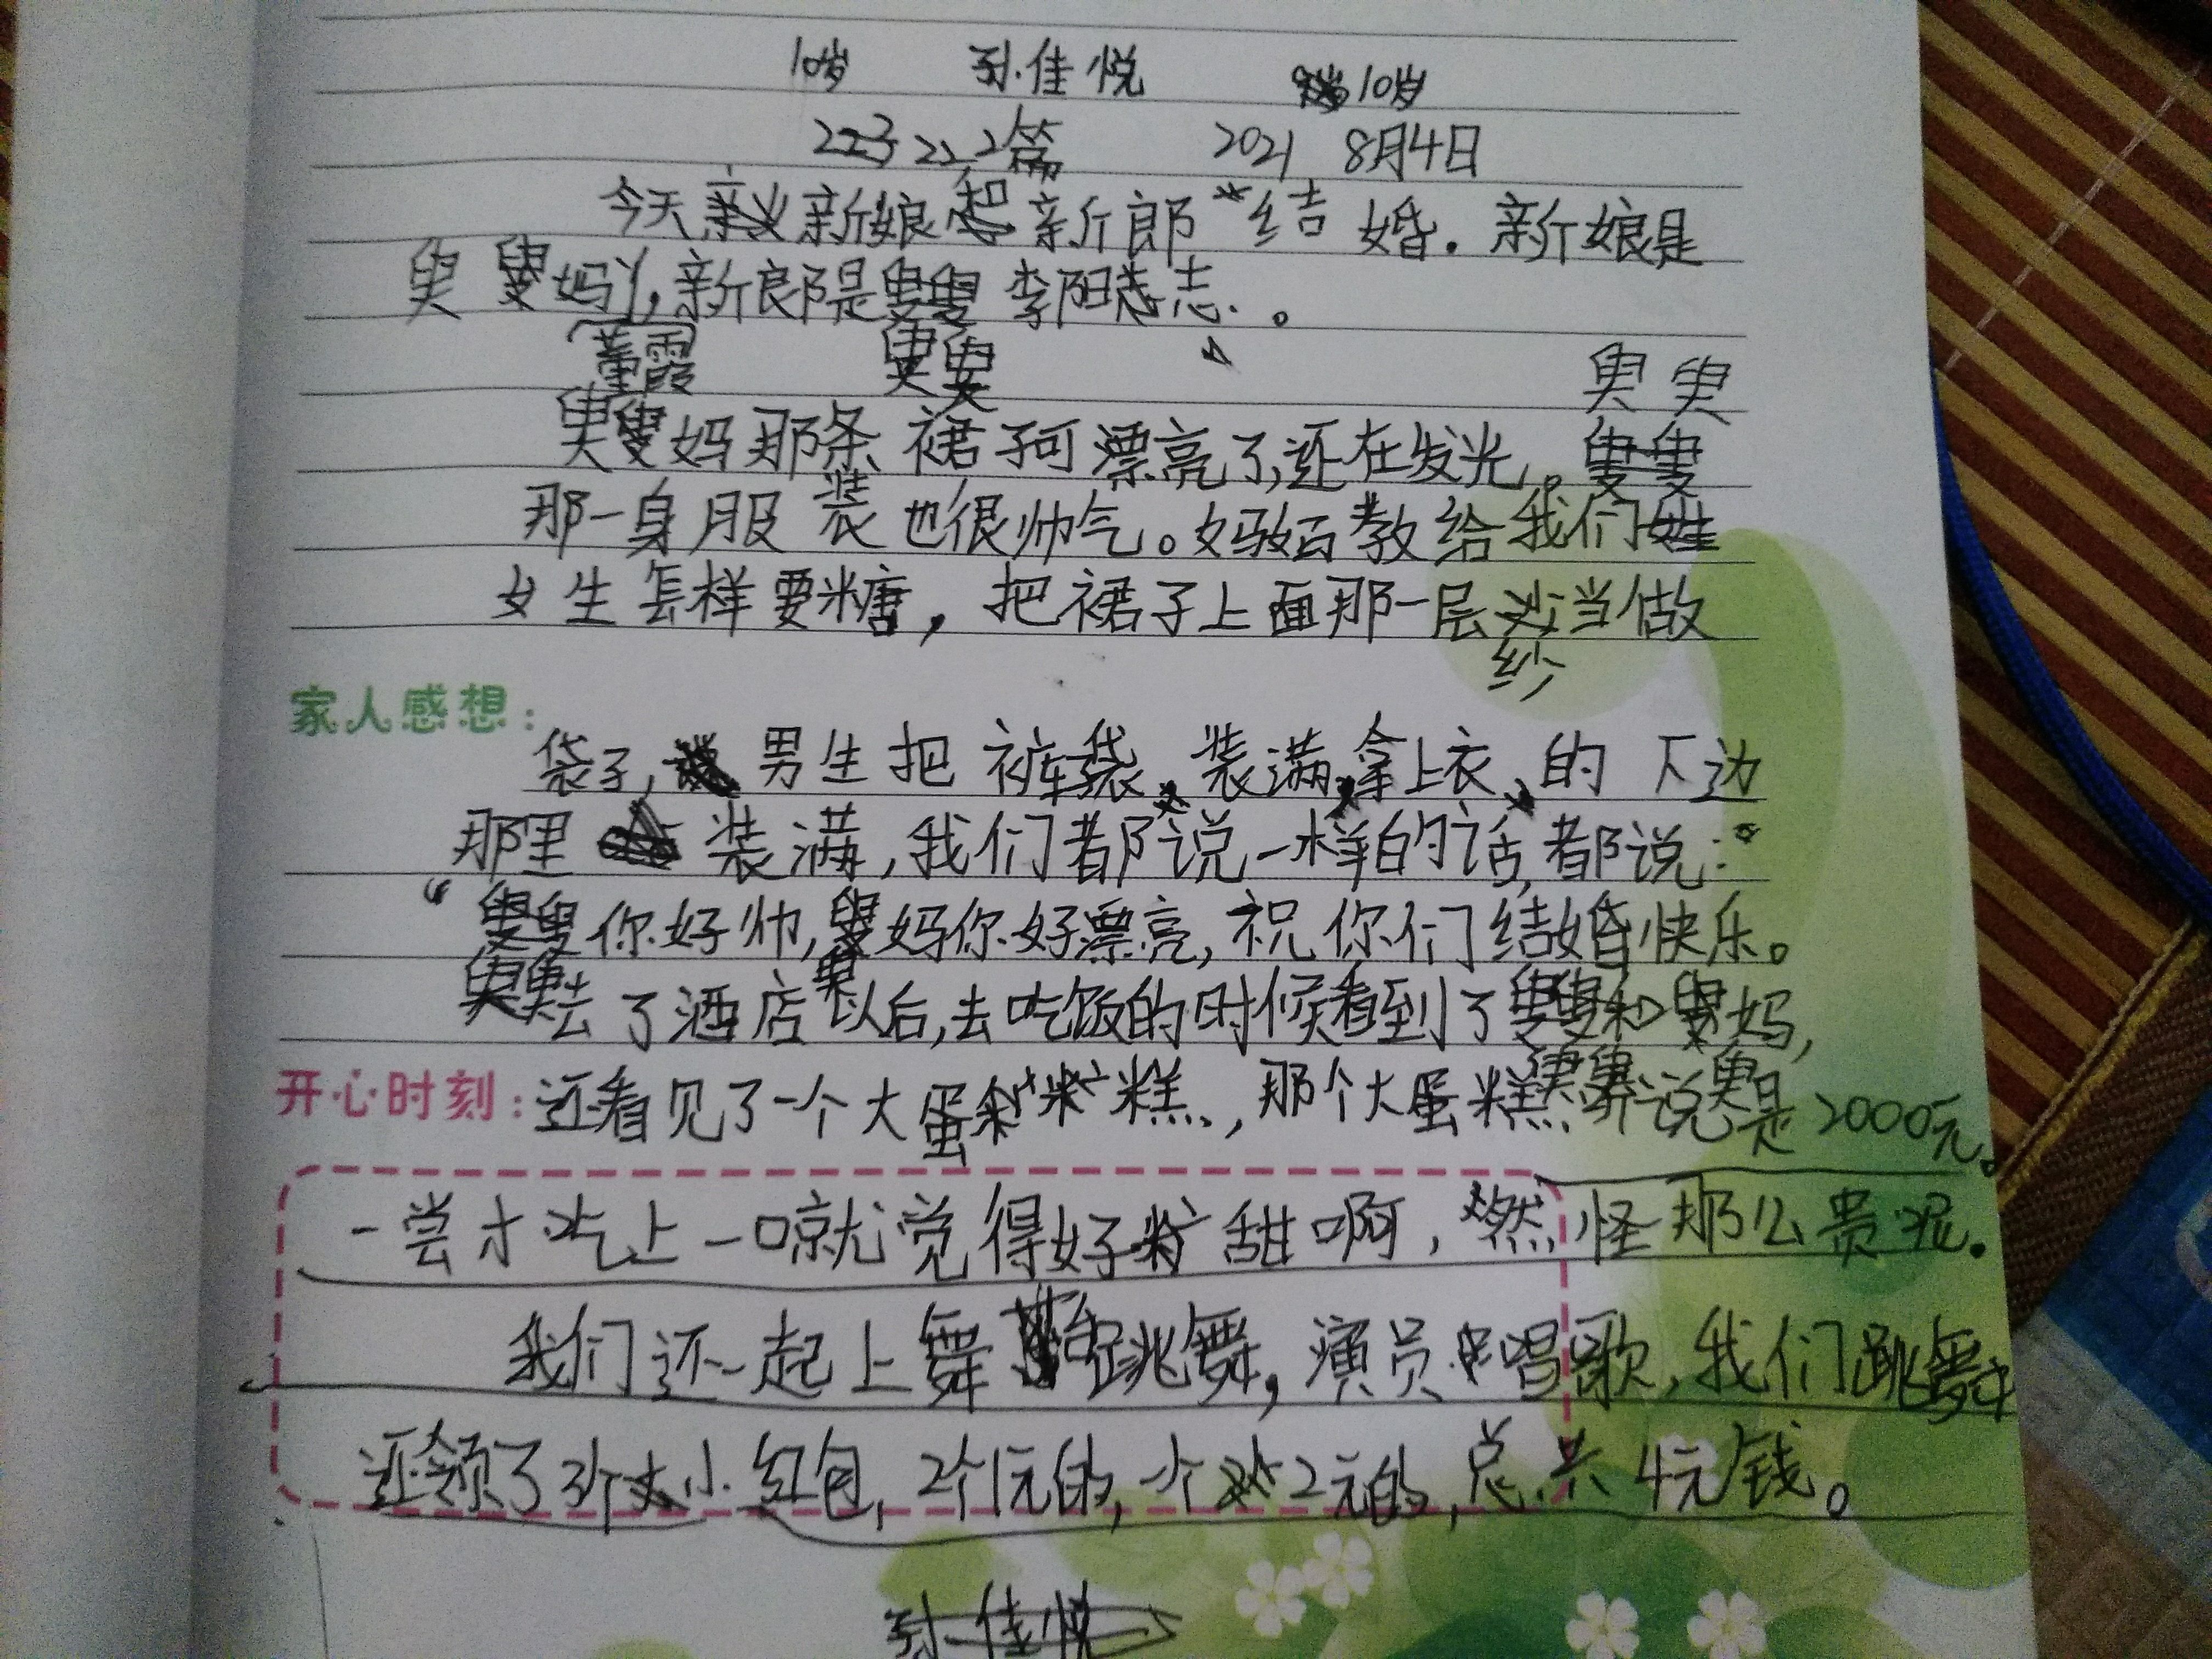 10岁 孙佳悦 10岁
222篇 2021 8月4日
今天新娘和新郎结婚。新娘是
舅妈,新郎是舅舅李阳志。
董霞 舅舅
舅妈那条裙子可漂亮了,还在发光。舅舅
那一身服装也很帅气。妈妈教给我们
女生怎样要糖,把裙子上面那一层纱当做
家人感想:
袋子,男生把裤袋装满,拿上衣的下边
那里装满,我们都说一样的话,都说:
“舅舅你好帅,舅妈你好漂亮,祝你们结婚快乐。
去了酒店以后,去吃饭的时候看到了舅舅和舅妈,
开心时刻:还看见了一个大蛋糕,那个大蛋糕说是2000元。
一尝才吃上一口就觉得好甜啊,怪那么贵呢.
我们还一起上舞台跳舞,演员唱歌,我们跳舞
还领了3个小红包,2个1元的,一个2元的,总共4元钱。
孙佳悦